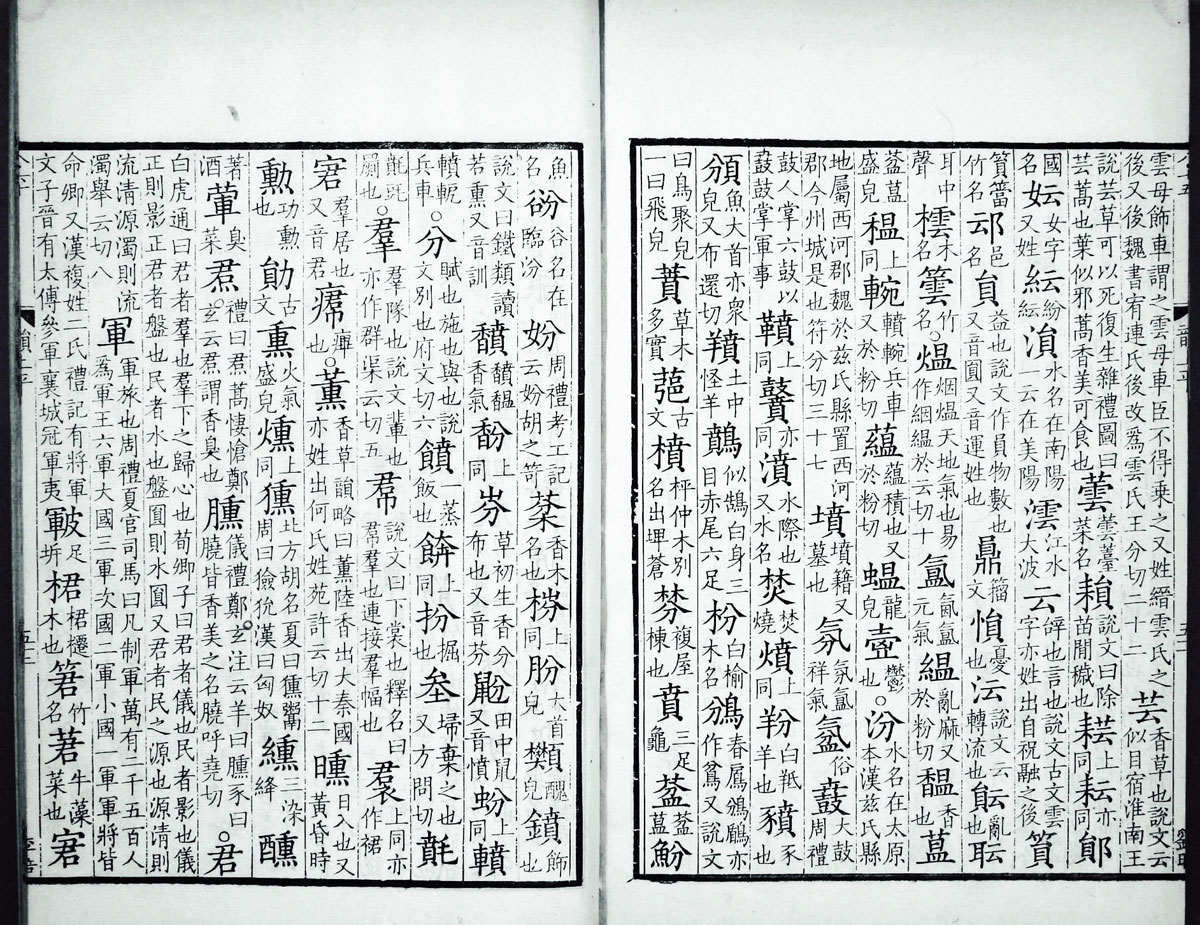 雲母飾車謂之雲母車臣不得乘之又姓縉雲氏之後又後魏書宥連氏後改爲雲氏王分切二十二芸香草也說文云似目宿淮南王
說芸草可以死復生雜禮圖曰芸蒿也葉似邪蒿香美可食也蕓蕓薹菜名說文曰除苗閒穢也上同耘亦同鄖
國名妘女字又姓紜紛紜溳水名在南陽一云在美陽澐江水大波云辭也言也說文古文雲字亦姓出自祝融之後篔
篔簹竹名邧邑名員益也說文作員物數也又音圓又音運姓也鼎籀文愪憂也沄說文云轉流也䢵亂也䎳
耳中聲橒木名䉙竹名○熅烟熅天地氣也易作絪縕於云切十氳氤氳元氣縕亂麻又於粉切馧香也蒀
葐蒀盛皃䅧上同䡝轒䡝兵車又於粉切蘊蘊積也又於粉切蝹龍皃壼鬱也○汾水名在太原本漢兹氏縣
地屬西河郡魏於兹氏縣置西河郡今州城是也符分切三十七墳墳籍又墓也氛氛氳祥氣氳俗鼖大鼓周禮
鼓人掌六鼓以鼖鼓鼓掌軍事鞼上同鼖亦同濆水際也又水名焚焚燒燌上同羒白羝羊也豶豕也
頒魚大首亦衆皃又布還切羵土中怪羊鶰似鵠白身三目赤尾六足枌白榆木名鳻春鳸鳻鶞亦作鳶又說文
曰鳥聚皃一曰飛皃蕡草木多實萉古文橨枰仲木別名出埋蒼棼複屋棟也賁三足龜葐葐蒀魵
魚名㕣谷名在臨汾妢周禮考工記云妢胡之笴棻香木名也梤上同朌大首皃㸮醜皃鐼飾也
說文曰鐵類讀若熏又音訓馩馩馧香氣馚上同岎草初生香分布也又音芬鼢田中鼠又音憤蚡上同轒
轒䡝兵車○分賦也施也與也說文別也府文切六饙一蒸飯也餴上同扮掘也坌埽棄之也又方問切㲈
㲈㲋罽也○羣羣隊也說文輩也亦作群渠云切五帬說文曰下裳也釋名曰帬羣也連接羣幅也裠上同亦作裙
宭羣居也又音君㿏痹也○薰香草韻略曰薰陸香出大秦國亦姓出何氏姓苑許云切十二曛日入也又黃昏時
勳功勳也勛古文熏火氣盛皃燻上同獯北方胡名夏曰獯鬻周曰獫狁漢曰匈奴纁三染絳醺
著酒葷臭菜焄禮曰焄蒿悽愴鄭玄云焄謂香臭也臐儀禮鄭玄注云羊曰臐豕曰膮皆香美之名膮呼堯切○君
白虎通曰君者羣也羣下之歸心也荀卿子曰君者儀也民者影也儀正則影正君者盤也民者水也盤圓則水圓又君者民之源也源清則
流清源濁則流濁舉云切八軍軍旅也周禮夏官司馬曰凡制軍萬有二千五百人爲軍王六軍大國三軍次國二軍小國一軍軍將皆
命卿又漢複姓二氏禮記有將軍文子晉有太傅參軍襄城冠軍夷皸足坼桾桾櫏木也䇹竹名莙牛藻菜也宭